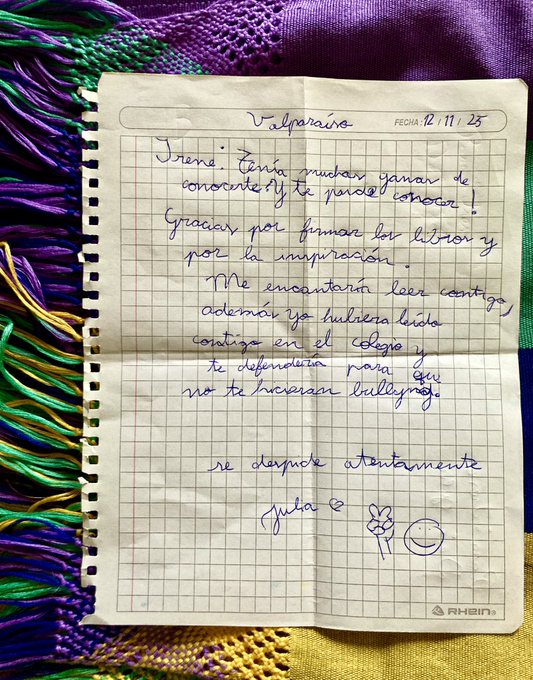 Valparaíso
FECHA: 12 / 11 / 25
Irene: Tenía muchas ganas de
conocerte. Y te pude conocer!
Gracias por firmar los libros y
por la inspiración.
Me encantaría leer contigo,
además yo hubiera leído
contigo en el colegio y
te defendería para que
no te hicieran bullyng.
se despide atentamente
Julia
RHEIN®